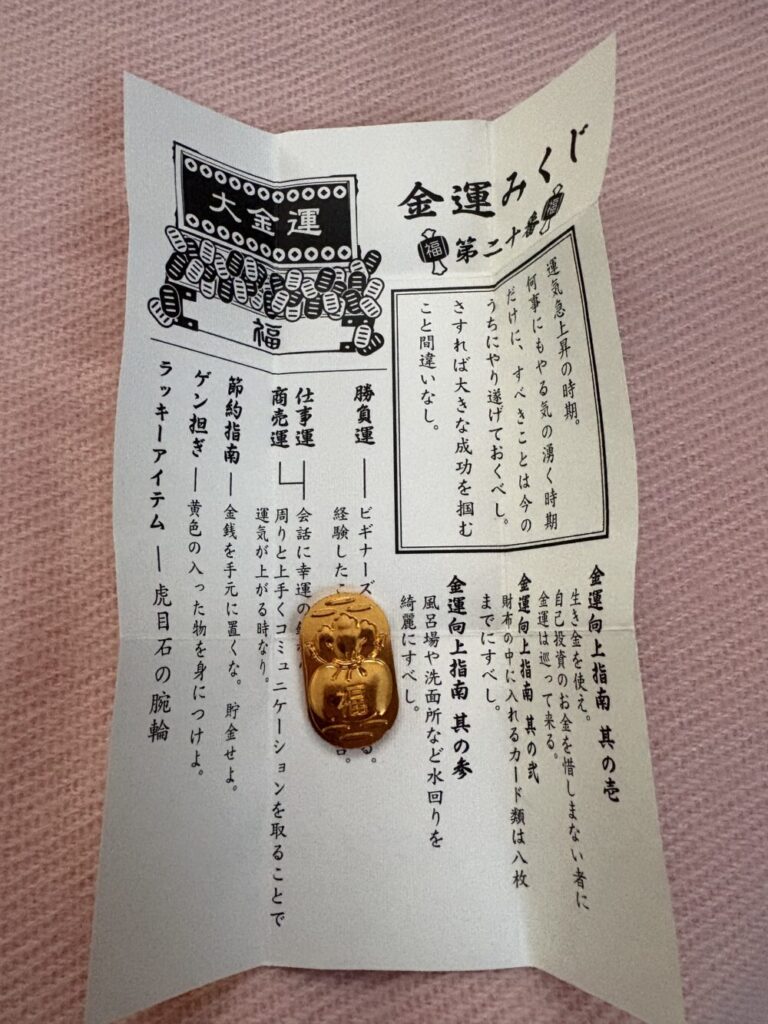 金運みくじ
福 第二十番 福
運気急上昇の時期。
何事にもやる気の湧く時期
だけに、すべきことは今の
うちにやり遂げておくべし。
さすれば大きな成功を掴む
こと間違いなし。
金運向上指南 其の壱
生き金を使え。
自己投資のお金を惜しまない者に
金運は巡って来る。
金運向上指南 其の弐
財布の中に入れるカード類は八枚
までにすべし。
金運向上指南 其の参
風呂場や洗面所など水回りを
綺麗にすべし。
大金運
福
勝負運 ― ビギナーズ
る。
経験したこ
仕事運
商売運
会話に幸運の
周りと上手くコミュニケーションを取ることで
運気が上がる時なり。
節約指南 ― 金銭を手元に置くな。貯金せよ。
ゲン担ぎ ― 黄色の入った物を身につけよ。
ラッキーアイテム ― 虎目石の腕輪
福